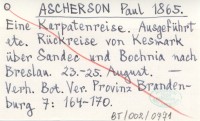 O ASCHERSON Paul 1865.
Eine Karpatenreise. Ausgeführt
etc. Rückreise von Kesmark
über Sandec und Bochnia nach
Breslau. 23.-25. August. —
Verh. Bot. Ver. Provinz Branden-
burg 7: 164-170.
BT/002/0971